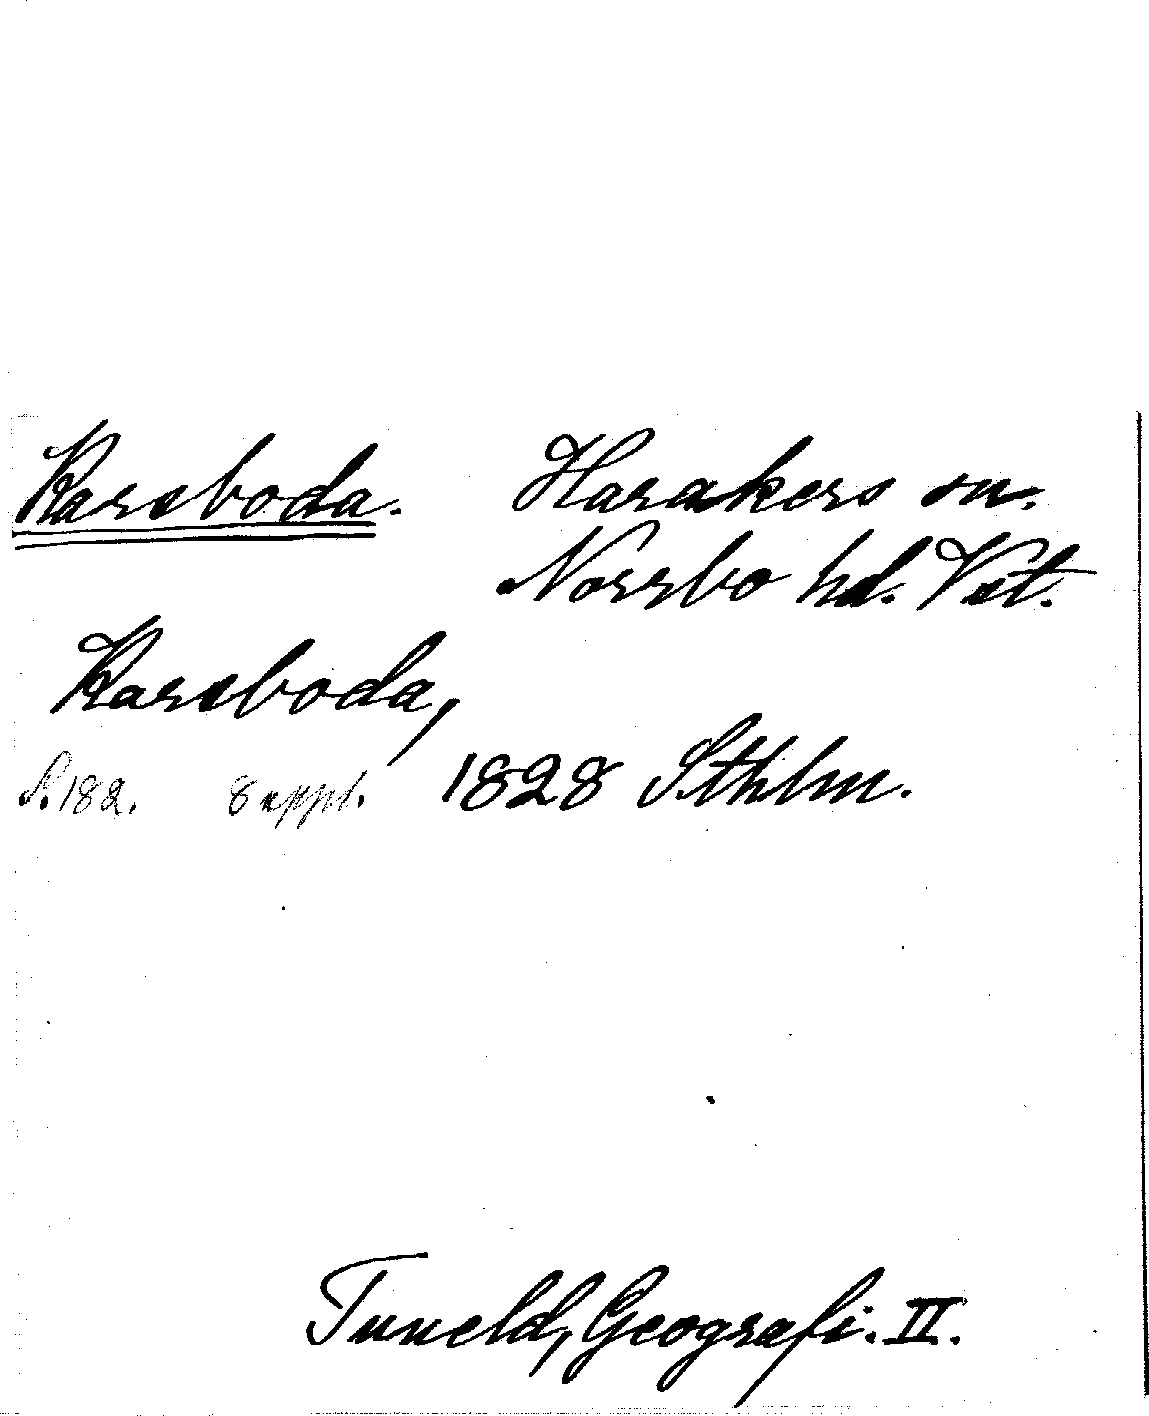 Karsboda. Harakers sn.
Norrbo hd. Vstl.
Karsboda,
S. 182. 8 uppl. 1828 Sthlm.
Tuneld, Geografi. II.